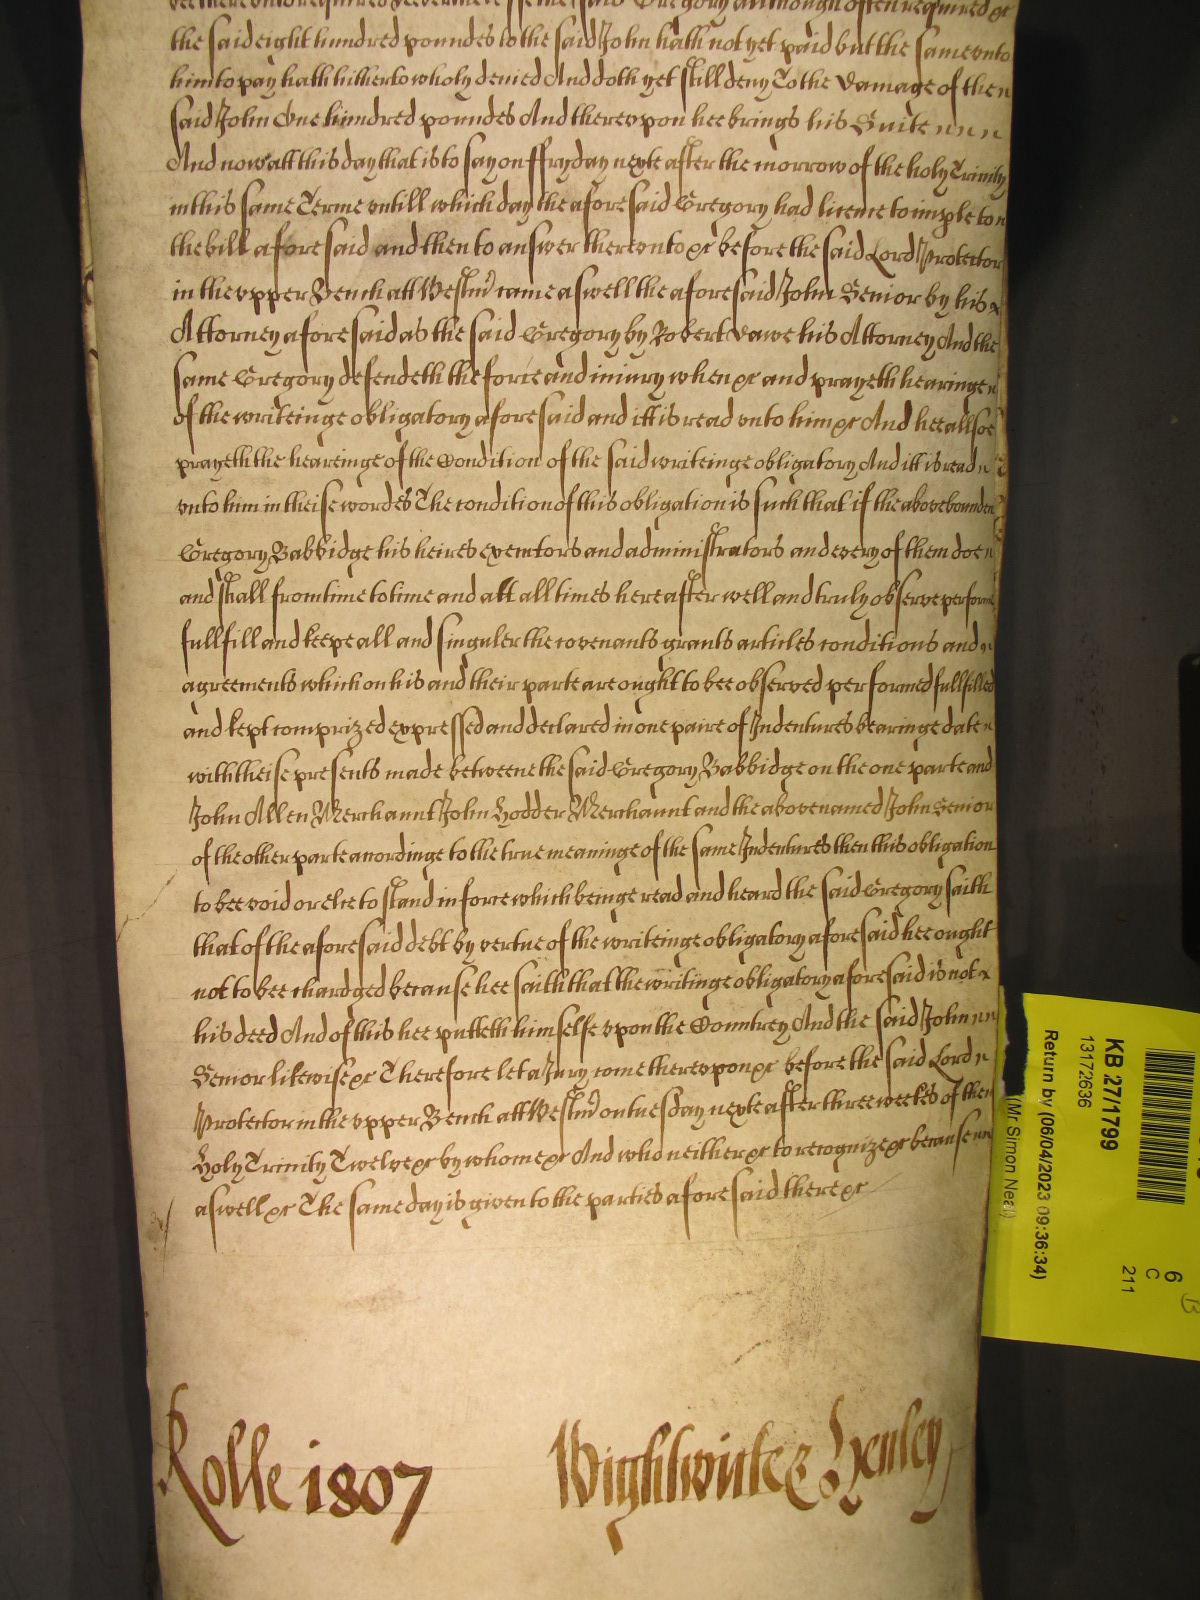 bee therevnto required Neverthelesse the said Gregory although often required &c
the said eight hundred poundes to the said John hath not yet paid but the same vnto
him to pay hath hitherto wholy denied And doth yet still deny To the Damage of the
said John One hundred poundes And therevpon hee brings his Suite
And now att this day that is to say on ffryday nexte after the morrow of the holy Trinity
in this same Terme vntill which day the aforesaid Gregory had licence to imple to
the bill aforesaid and then to answer therevnto &c before the said Lord Protector
in the vpper Bench att Westmr came aswell the aforesaid John Senior by his
Attorney aforesaid as the said Gregory by Robert Dawe his Attorney And the
same Gregory defendeth the force and iniury when &c and prayeth hearinge
of the writeinge obligatory aforesaid and itt is read vnto him &c And hee allsoe
prayeth the heareinge of the Condition of the said writeinge obligatory And itt is read
vnto him in theise wordes The condition of this obligation is such that if the abovebounden
Gregory Babbidge his heires executors and administrators and every of them doe
and shall from time to time and att all times hereafter well and truly observe performe
fullfill and keepe all and singuler the covenants grants articles conditions and
agreements which on his and their parte are ought to bee observed performed fullfilled
and kept comprized expressed and declared in one paire of Indentures bearinge date
with theise presents made betweene the said Gregory Babbidge on the one parte and
John Allen Merchaunt John Hodder Merchaunt and the abovenamed John Senior
of the other parte accordinge to the true meaninge of the same Indentures then this obligation
to bee void or elce to stand in force which beinge read and heard the said Gregory saith
that of the aforesaid debt by vertue of the writeinge obligatory aforesaid hee ought
not to bee chardged because hee saith that the writinge obligatory aforesaid is not
his deed And of this hee putteth himselfe vpon the Countrey And the said John
Senior likewise &c Therefore let a Jury come therevpon &c before the said Lord
Protector in the vpper Bench att Westmr on tuesday nexte after three weekes of the
Holy Trinity Twelve &c by whome &c And who neither &c to recognize &c because
aswell &c The same day is given to the parties aforesaid there &c
Rolle 1807 Wightwicke & Henley
KB 27/1799
13172636
Return by (06/04/2023 09:36:34)
(Mr Simon Neal)
6
C
211